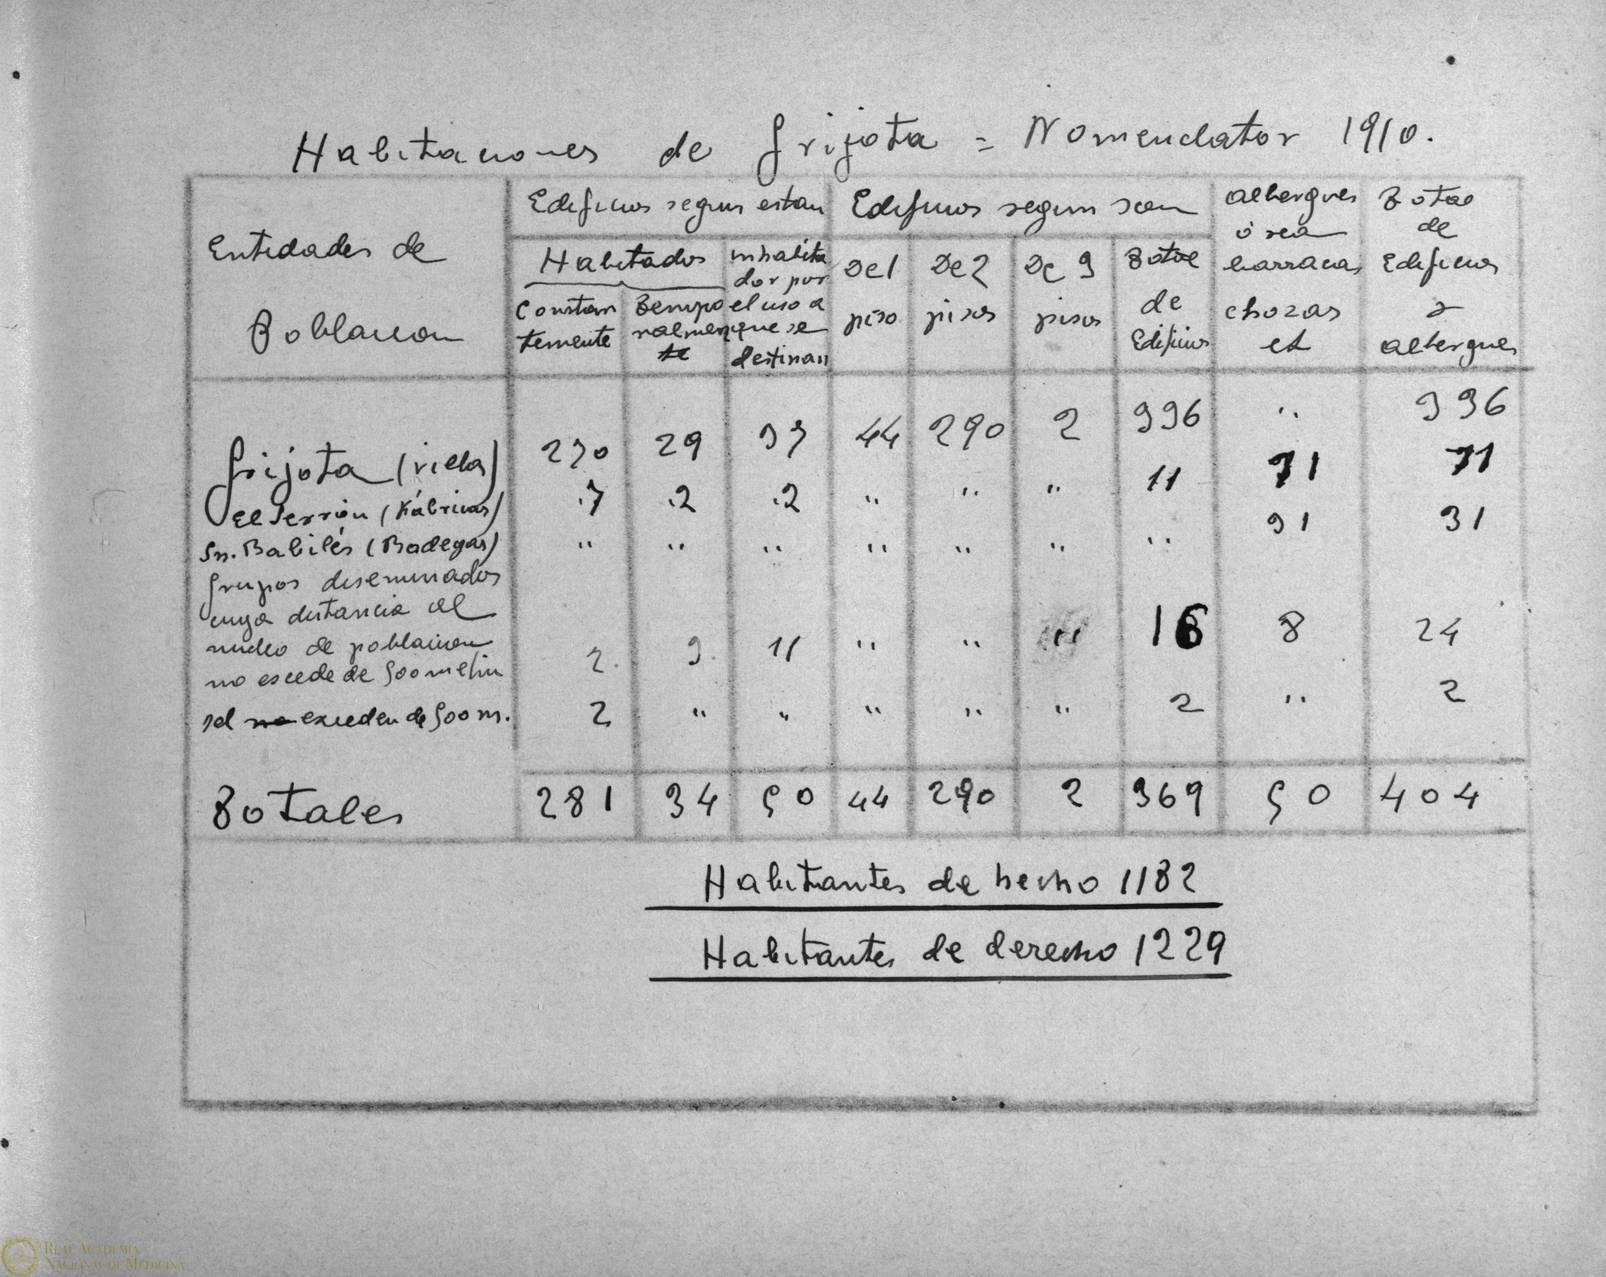 Habitaciones de Grijota = Nomenclator 1910.
Entidades de Poblacion
Edificios segun estan
Edificios segun sean
albergues ó sea barracas chozas et
Total de Edificios y albergues
Habitados
inhabitados por el uso a que se destinan
Constantemente
Temporalmente
De 1 piso
De 2 pisos
De 3 pisos
Total de Edificios
Grijota (villa) 270 29 37 44 290 2 336 " 336
El Serrón (Fábricas) .7 .2 .2 " " " 11 71 71
Sn. Babilés (Bodegas) " " " " " " " 31 31
Grupos diseminados
cuya distancia al
nucleo de poblacion
no escede de 500 metros 2. 3. 11 " " " 16 8 24
id no exceden de 500 m. 2 " " " " " 2 " 2
Totales 281 34 50 44 290 2 369 50 404
Habitantes de hecho 1182
Habitantes de derecho 1229
Real Academia
Nacional de Medicina